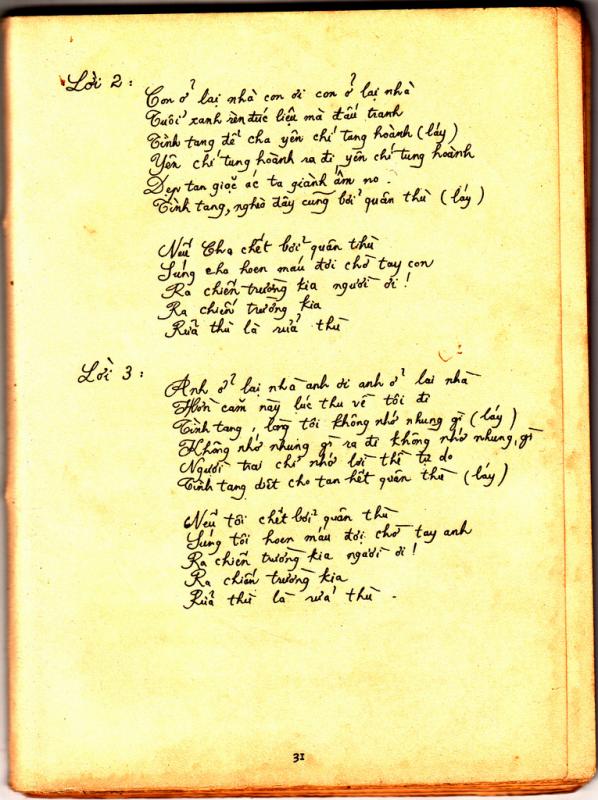 Lời 2 :
Con ở lại nhà con ơi con ở lại nhà
Tuổi xanh rèn đúc liệu mà đấu tranh
Tình tang để cha yên chí tang hoành (láy)
Yên chí tung hoành ra đi yên chí tung hoành
Dẹp tan giặc ác ta giành ấm no .
Tình tang, nghèo đây cũng bởi quân thù (láy)
Nếu Cha chết bởi quân thù
Súng cha hoen máu đợi chờ tay con
Ra chiến trường kia người ơi !
Ra chiến trường kia
Rửa thù là rửa thù
Lời 3 :
Anh ở lại nhà anh ơi anh ở lại nhà
Hờn căm này lúc thu về tôi đi
Tình tang , lòng tôi không nhớ nhung gì (láy)
Không nhớ nhung gì ra đi không nhớ nhung gì
Người trai chỉ nhớ lời thề tự do
Tình tang diệt cho tan hết quân thù (láy)
Nếu tôi chết bởi quân thù
Súng tôi hoen máu đợi chờ tay anh
Ra chiến trường kia người ơi !
Ra chiến trường kia
Rửa thù là rửa thù .
31